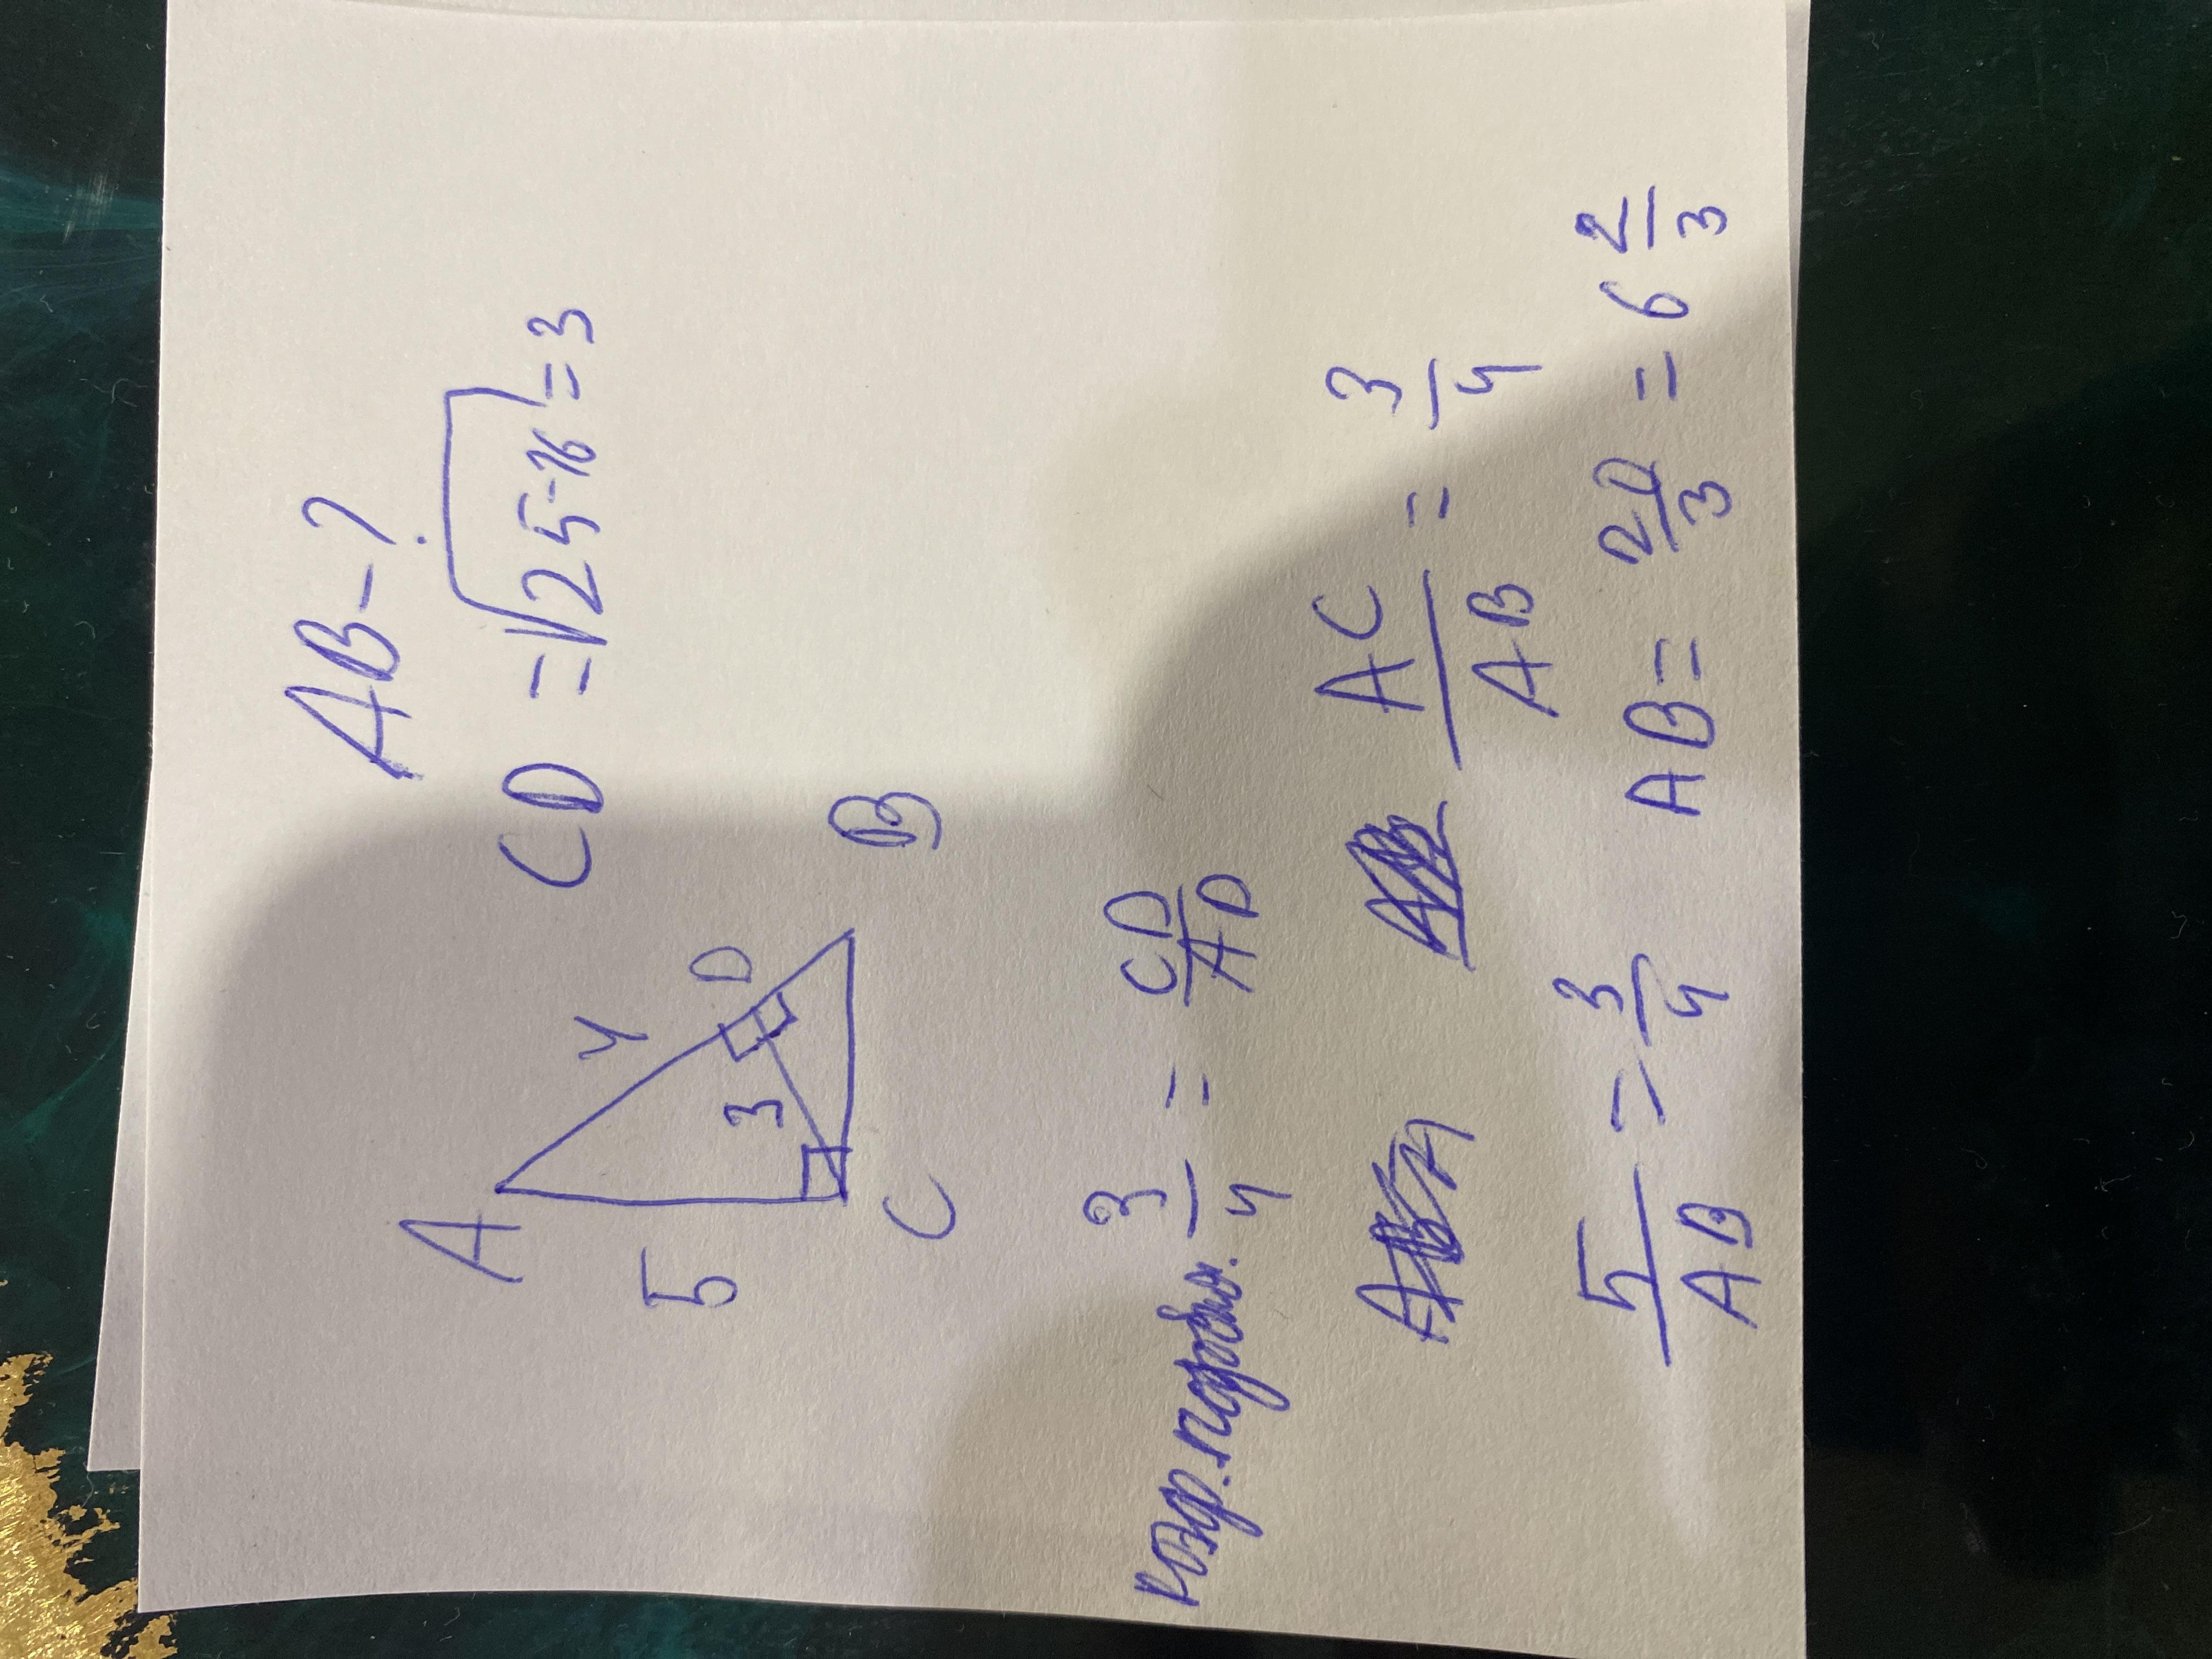 AB-?
CD = √25-16 = 3
A
5
4
3
D
C
B
коэф. подобия. 3/4 = CD/AD
AC/AB = 3/4
5/AB = 3/4 AB = 20/3 = 6 2/3